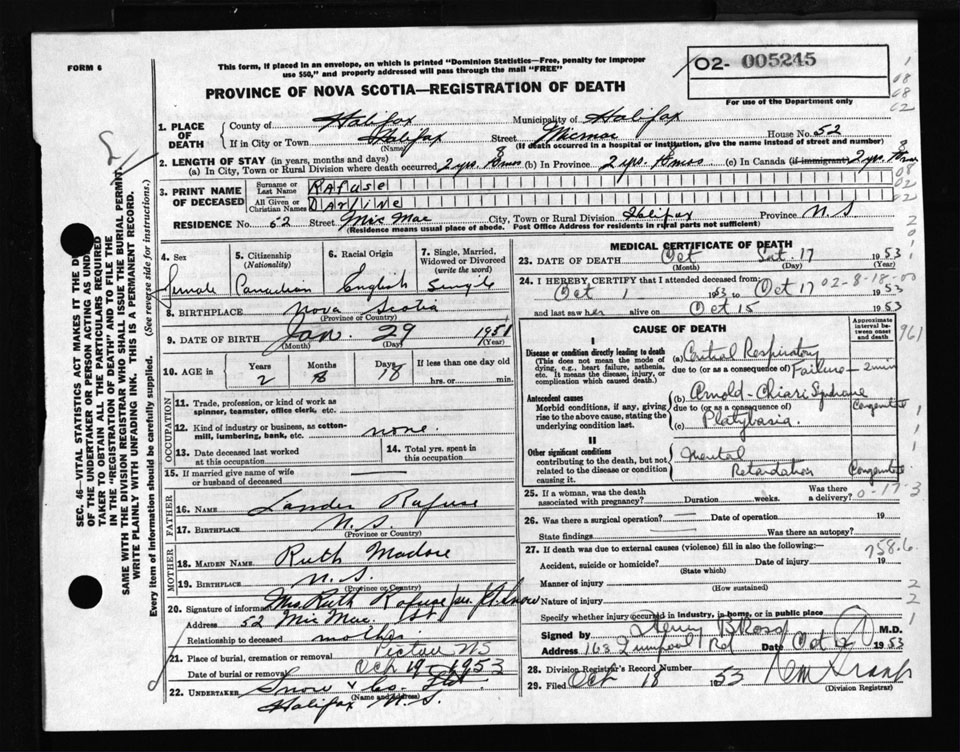 FORM 6
This form, if placed in an envelope, on which is printed "Dominion Statistics—Free, penalty for improper
use $50," and properly addressed will pass through the mail "FREE"
PROVINCE OF NOVA SCOTIA—REGISTRATION OF DEATH
02- 005245
For use of the Department only
1. PLACE OF DEATH
County of Halifax Municipality of Halifax
If in City or Town Halifax Street Micmac House No. 52
(Name) (If death occurred in a hospital or institution, give the name instead of street and number)
2. LENGTH OF STAY (in years, months and days)
(a) In City, Town or Rural Division where death occurred 2 yrs. 8 mos (b) In Province 2 yrs. 8 mos (c) In Canada (if immigrant) 2 yrs.
3. PRINT NAME OF DECEASED
Surname or Last Name Rafuse
All Given or Christian Names Darline
RESIDENCE No. 52 Street Mic Mac City, Town or Rural Division Halifax Province N.S
(Residence means usual place of abode. Post Office Address for residents in rural parts not sufficient)
4. Sex Female
5. Citizenship (Nationality) Canadian
6. Racial Origin English
7. Single, Married, Widowed or Divorced (write the word) Single
8. BIRTHPLACE Nova Scotia
(Province or Country)
9. DATE OF BIRTH Jan. 29 1951
(Month) (Day) (Year)
10. AGE Years 2 Months 8 Days 18 If less than one day old hrs. or min.
OCCUPATION
11. Trade, profession, or kind of work as spinner, teamster, office clerk, etc.
12. Kind of industry or business, as cotton-mill, lumbering, bank, etc. none.
13. Date deceased last worked at this occupation
14. Total yrs. spent in this occupation
15. If married give name of wife or husband of deceased
FATHER
16. NAME Lander Rafuse
17. BIRTHPLACE N.S.
(Province or Country)
MOTHER
18. MAIDEN NAME Ruth
19. BIRTHPLACE N.S.
(Province or Country)
20. Signature of informant Mrs. Ruth Rafuse per Snow
Address 52 Mic Mac
Relationship to deceased mother
21. Place of burial, cremation or removal Pictou NS
Date of burial or removal Oct 19 1953
22. UNDERTAKER Snow & Co. Ltd.
(Name and Address)
Halifax N.S.
MEDICAL CERTIFICATE OF DEATH
23. DATE OF DEATH Oct Sat. 17 1953
(Month) (Day) (Year)
24. I HEREBY CERTIFY that I attended deceased from:
Oct 1 1953 to Oct 17 02-8-18-00 1953
and last saw her alive on Oct 15 1953
CAUSE OF DEATH
Approximate interval between onset and death
961
I
Disease or condition directly leading to death
(This does not mean the mode of dying, e.g., heart failure, asthenia, etc. It means the disease, injury, or complication which caused death.
(a) Central Respiratory
due to (or as a consequence of) Failure - 2 min
Antecedent causes
Morbid conditions, if any, giving rise to the above cause, stating the underlying condition last.
(b) Arnold-Chiari Syndrome
due to (or as a consequence of) Congenital
(c) Platybasia.
II
Other significant conditions
contributing to the death, but not related to the disease or condition causing it.
Mental
Retardation Congenital
25. If a woman, was the death associated with pregnancy? Duration weeks. Was there a delivery?
0-17-3
26. Was there a surgical operation? Date of operation 19
State findings Was there an autopsy?
27. If death was due to external causes (violence) fill in also the following:—
758.6
Accident, suicide or homicide? Date of injury 19
(State which)
Manner of injury
(How sustained)
Nature of injury
Specify whether injury occurred in industry, in home, or in public place
Signed by Henry B Ross M.D.
Address 163 Quinpool Rd Date Oct 1953
28. Division Registrar's Record Number
29. Filed Oct 18 1953
(Division Registrar)
SEC. 46—VITAL STATISTICS ACT MAKES IT THE
OF THE UNDERTAKER OR PERSON ACTING AS UNDER
TAKER TO OBTAIN ALL THE PARTICULARS REQUIRED
IN THE "REGISTRATION OF DEATH" AND TO FILE THE
SAME WITH THE DIVISION REGISTRAR WHO SHALL ISSUE THE BURIAL PERMIT.
WRITE PLAINLY WITH UNFADING INK. THIS IS A PERMANENT RECORD.
Every item of information should be carefully supplied. (See reverse side for instructions.)